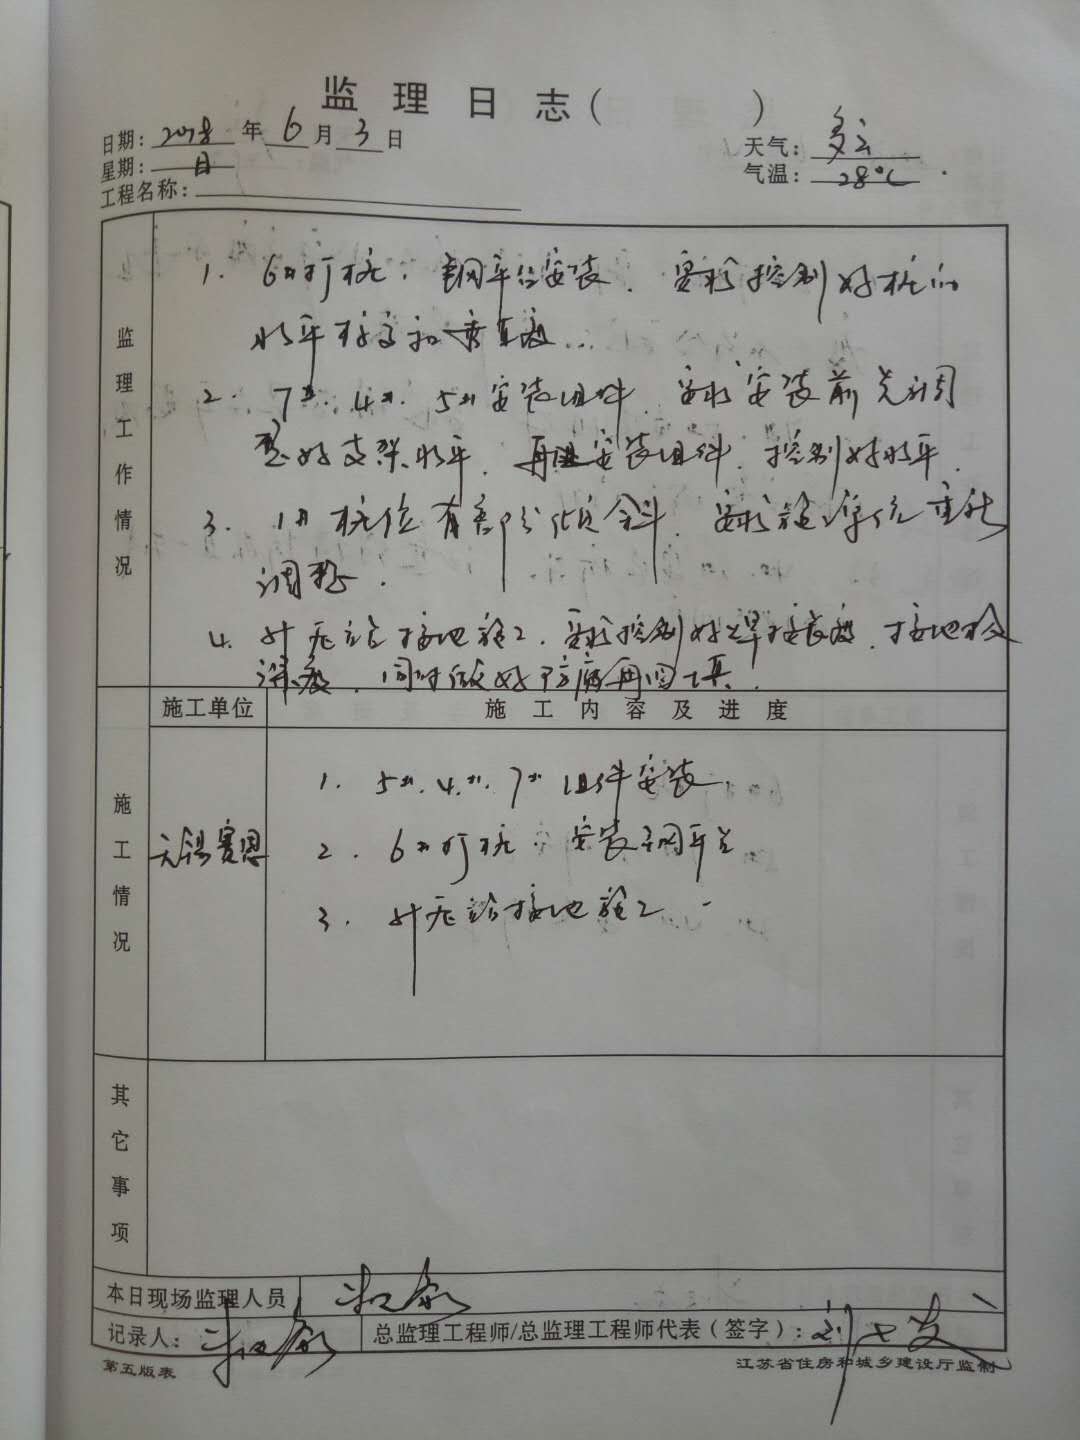 监理日志（ ）
日期：2018年6月3日
天气：多云
星期：日
气温：28℃
工程名称：
监理工作情况
1. 6#打桩，钢平台安装，要求控制好桩的
水平标高和垂直度
2. 7#、4#、5#安装组件，要求安装前先调
整好支架水平，再安装组件，控制好水平，
3. 1#桩位有部份倾斜，要求施工单位重新
调整。
4. 升压站接地施工，要求控制好焊接长度，接地
深度，同时做好防腐再回填。
施工单位
施工内容及进度
施工情况
无锡赛恩
1. 5#、4#、7#组件安装
2. 6#打桩，安装钢平台
3. 升压站接地施工
其它事项
本日现场监理人员
记录人：
总监理工程师/总监理工程师代表（签字）：
第五版表
江苏省住房和城乡建设厅监制